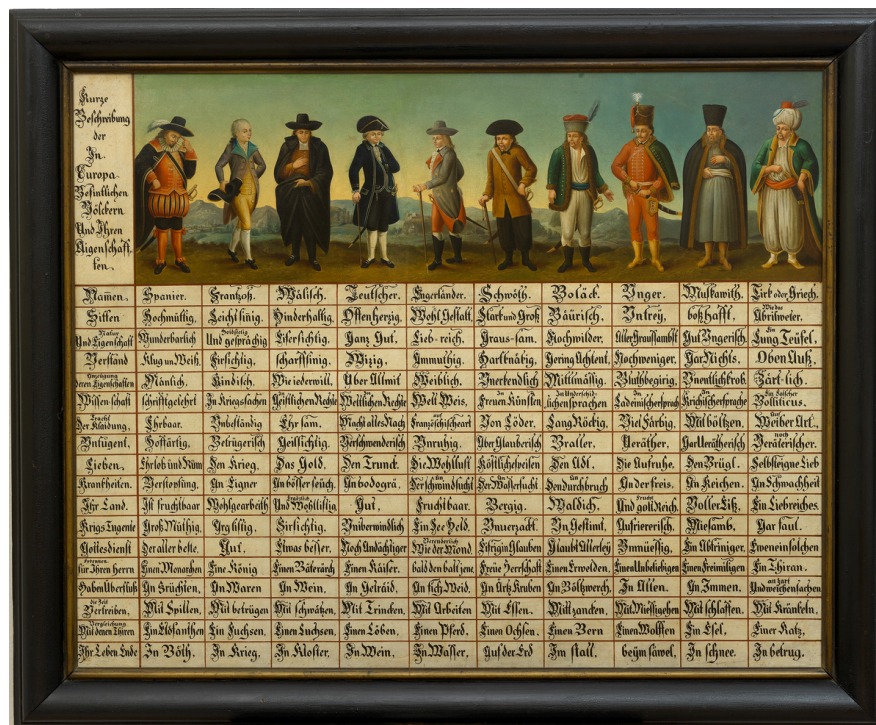 Kurze
Beschreibung
der
In
Europa
Befintlichen
Völckern
Und Ihren
Aigenschaff,
ten.
Namen. Spanier. Frantzoß. Wälisch. Teutscher. Engerländer. Schwöth. Boläck. Unger. Muskawith. Tirk oder Griech.
Sitten Hochmüttig, Leichtsinig, Hinderhaltig, Offenherzig, Wohl Gestalt, Starck und Groß Bäurisch, Untrey, boßhafft, Wie das Abrilweter.
Natur Und Eigenschaft Wunderbarlich Und gesprächig Eifersichtig, Ganz Gut, Lieb-reich, Graus-sam, Nochwilder, Aller Graussambst Gut Ungerisch, Ein Lung Teüfel,
Verständ Klug un Weiß, Firsichtig, scharffsinig, Wizig, Ammuthig, Hartknäbig, Gering Achtent, Nochweniger, Gar Nichts, Oben Auß,
Anzeigung deren Eigenschaften Mänlich, Kindisch, Wie iederwill, Über Allmit Weiblich, Unerkendlich Mittlmäßig, Bluthbegirig, Unentlichkrob, Zärt-lich.
Wissenschaft schrifftgelehrt In Kriegssachen Geistlichen Rechte Weltlichen Rechte Welt Weis, In Freuen Künsten In Underschidlichen sprachen In Ladeinischersprach In Krichischersprache Ein Falscher Bolliticus.
Tracht Der Klaidung, Ehrbaar, Unbeständig Ehrsam, Macht alles Nach auf Französchischeart Von Löder, Lang Röckig, Viel Färbig, Mit böltzen, Auf Weiber Art.,
Untugent, Hoffärtig, Betrügerisch Geilsichtig, Verschwenderisch Unruhig, Über Glauberisch Braller, Veräther, Gar Verätherisch noch Veräterischer.
Lieben, Ehrlob und Rüm Den Krieg, Das Gold, Den Trunck, Die Wohllust Köstliche speisen Den Adl, Die Aufruhe, Den Brügl, Selbsteigne Lieb
Krankheiten, Verstopfung, An Eigner An bösser seüch, An bodogrä, An Der schwindsucht An Der Wassersucht Den Durchbruch An der freis, An Keichen, An Schwachheit
Ihr Land, Ist fruchtbaar Wohlgearbeith Und Wohllistig Gut, Fruchtbaar, Bergig, Waldich, Frucht Und golt Reich, Voller Eiß, Ein Liebreiches
Krigs Tugente Groß Müthig, Arglistig, Firsichtig, Uniberwindlich Ein See Held, Unverzackt, Un Gestimt, Aufriererisch, Miesamb, Gar faul,
Gottesdienst Der aller beste, Gut, Etwas besser, Noch Andächtiger Wie der Mond Eifrig in Glauben Glaubt Allerley Unmüessig, Ein Abtriniger, Eweneinsolchen
Erkennen für Ihren herrn Einen Monarchen Eine König Einen Bäterärch Einen Kaiser, bald den balt jene, Freüe Herrschaft Einen Erwelden, Einen Unbeliebigen Einen Freimilligen Ein Thiran,
Haben Überfluß An Früchten, An Waren An Wein, An Getraid, An fich Weid, An Ärtz Kruben An Böltzwerch, In Allen, An Immen, Und weichen sachen
die Zeit Vertreiben, Mit Spillen, Mit betrügen Mit schwätzen, Mit Trincken, Mit Arbeiten Mit Essen, Mit zancken, Mit Miessigehen Mit schlaffen, Mit Kränkeln,
Vergleichung Mit denen Thiren Ein Elofanthen Ein Fuchsen, Einen Luchsen, Einen Löben, Einen Pferd, Einen Ochsen, Einen Bern Einen Wolffen Ein Esel, Einer Katz,
Ihr Leben Ende In Böth, In Krieg, In Kloster, In Wein, In Wasser, Auf der Erd Im stall, beym säwel, In schnee, In betrug.